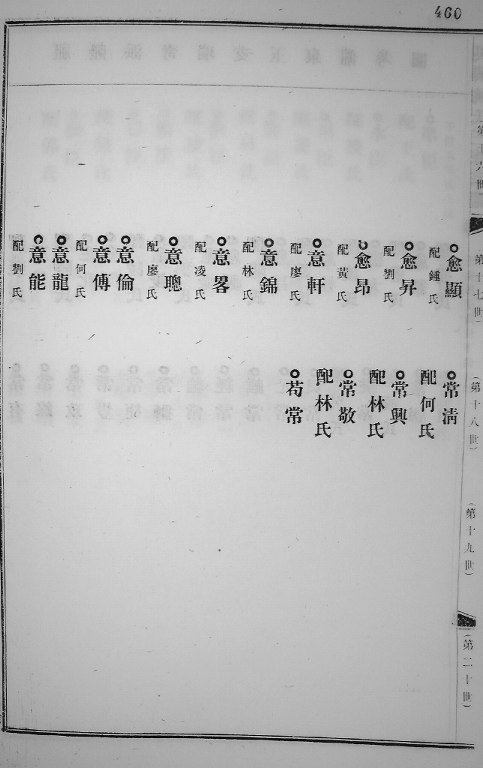 460
第十六世
(第十七世)
(第十八世)
(第十九世)
(第二十世)
愈顯
配鍾氏
愈昇
配劉氏
愈昂
配黃氏
意軒
配廖氏
意錦
配林氏
意畧
配凌氏
意聰
配廖氏
意倫
意傳
配何氏
意龍
意能
配劉氏
常清
配何氏
常興
配林氏
常敬
配林氏
苟常